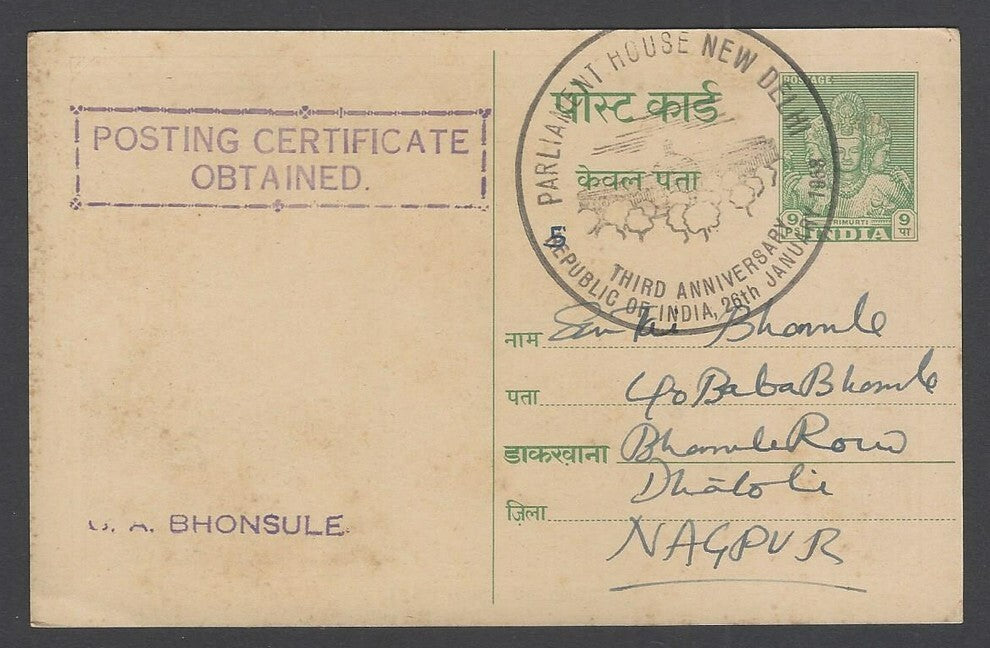 POSTING CERTIFICATE
OBTAINED.
PARLIAMENT HOUSE NEW DELHI
THIRD ANNIVERSARY
REPUBLIC OF INDIA, 26th JANUARY
पोस्ट कार्ड
केवल पता
5
POSTAGE
TRIMURTI
9 PS INDIA 9 पा
नाम Bhonsule
पता C/o Baba Bhonsule
डाकखाना Bhonsule Row
Dhātoli
ज़िला
NAGPUR
A. BHONSULE